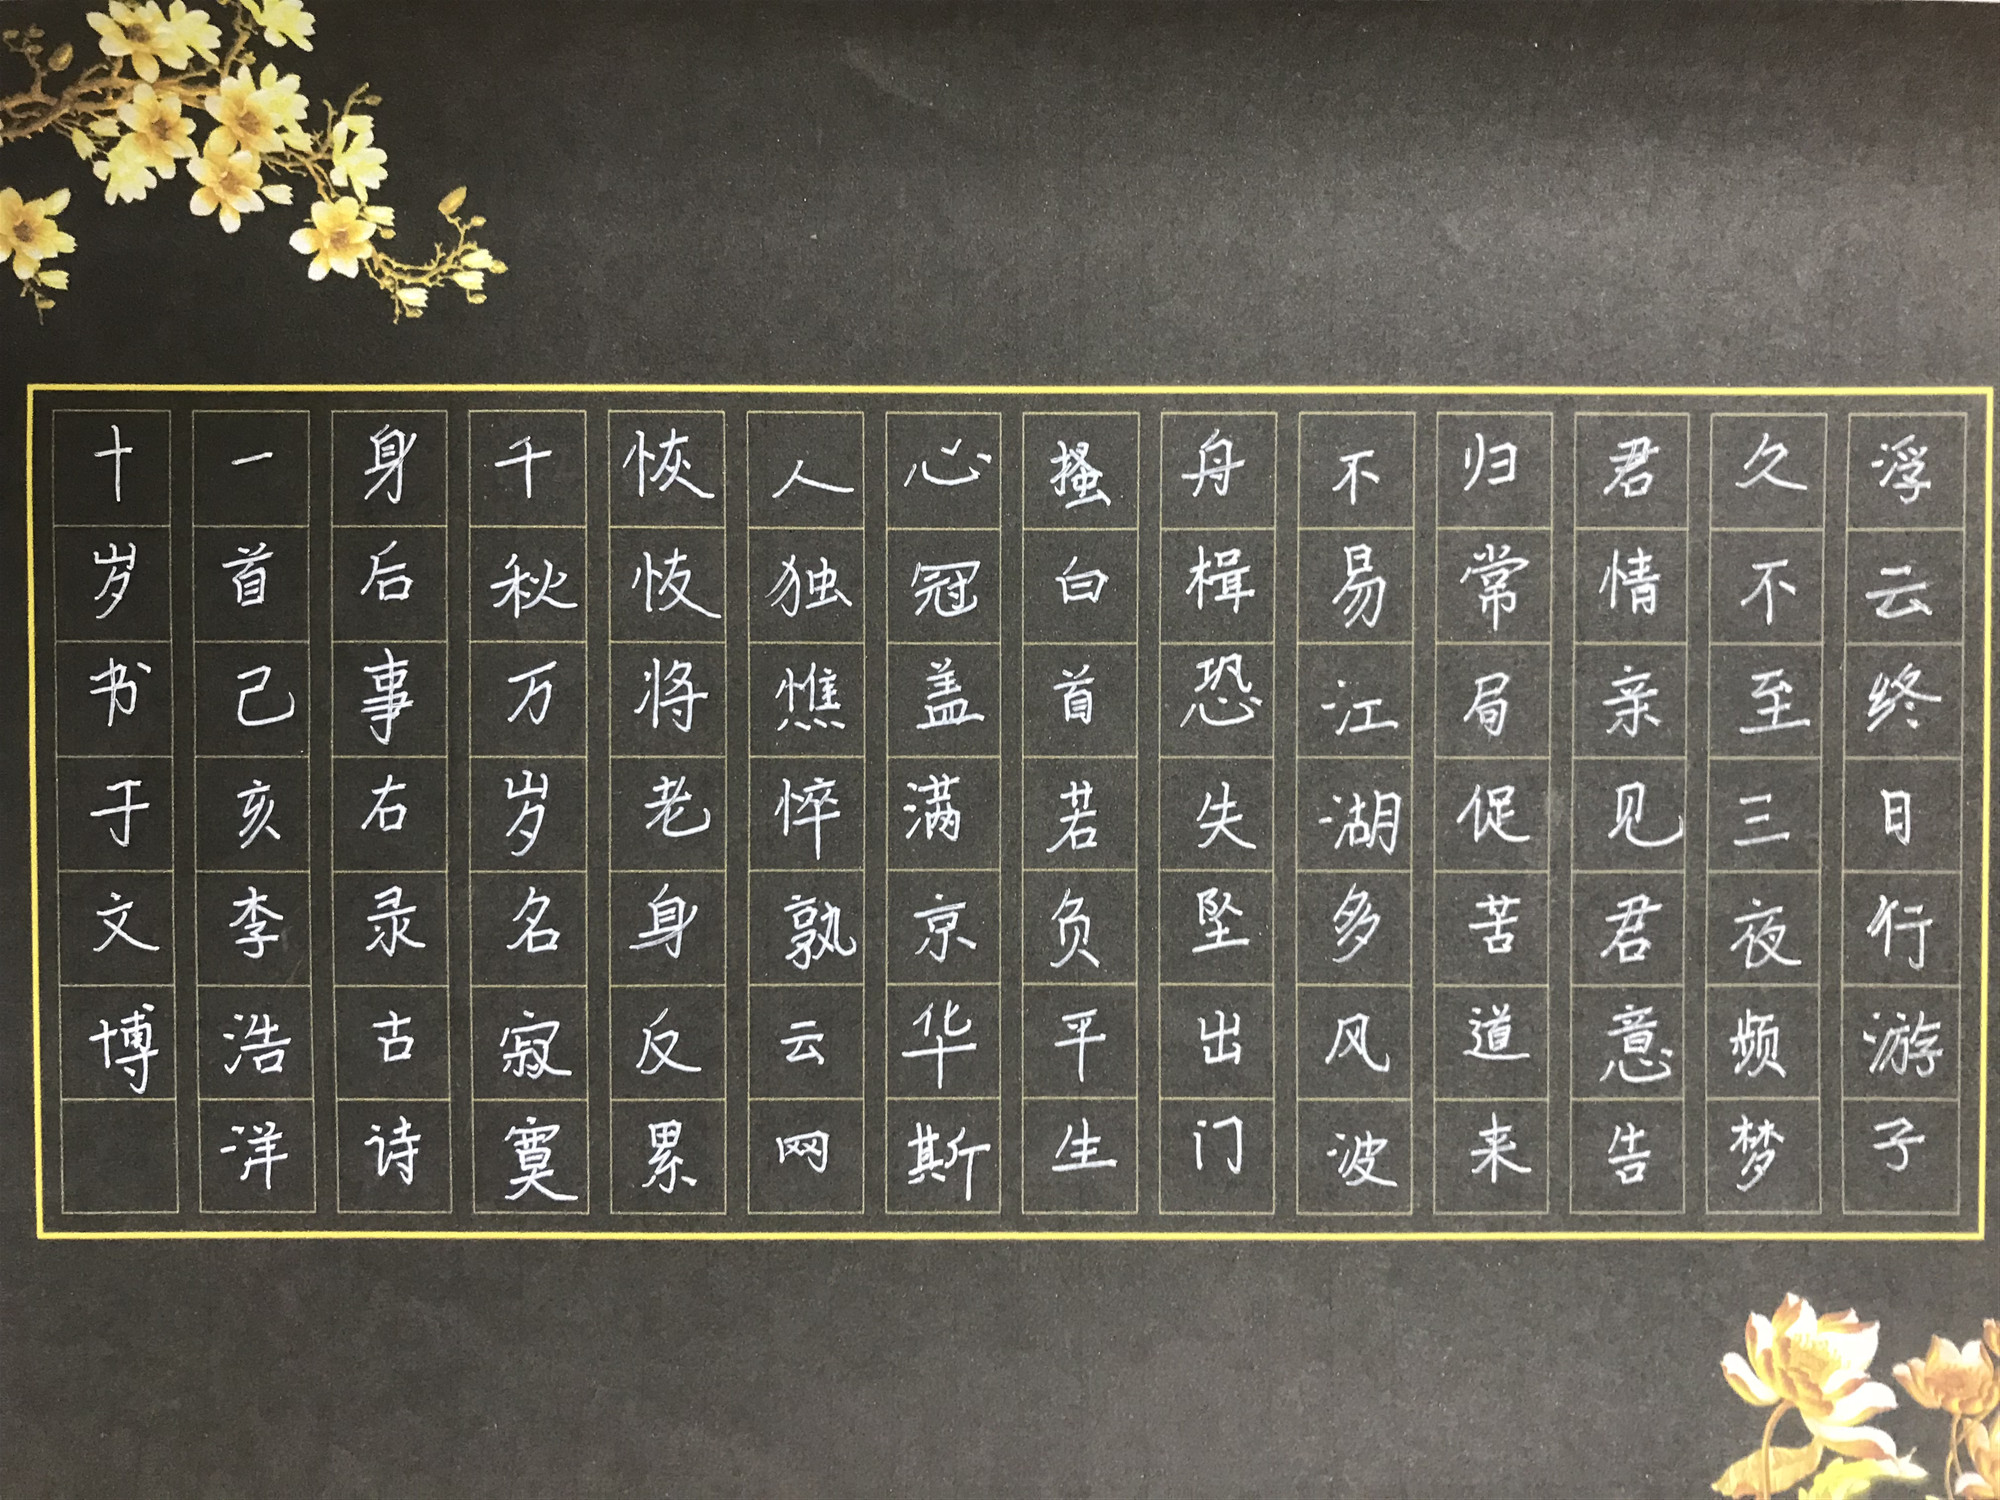 浮云终日行游子
久不至三夜频梦
君情亲见君意告
归常局促苦道来
不易江湖多风波
舟楫恐失坠出门
搔白首若负平生
心冠盖满京华斯
人独憔悴孰云网
恢恢将老身反累
千秋万岁名寂寞
身后事右录古诗
一首己亥李浩洋
十岁书于文博